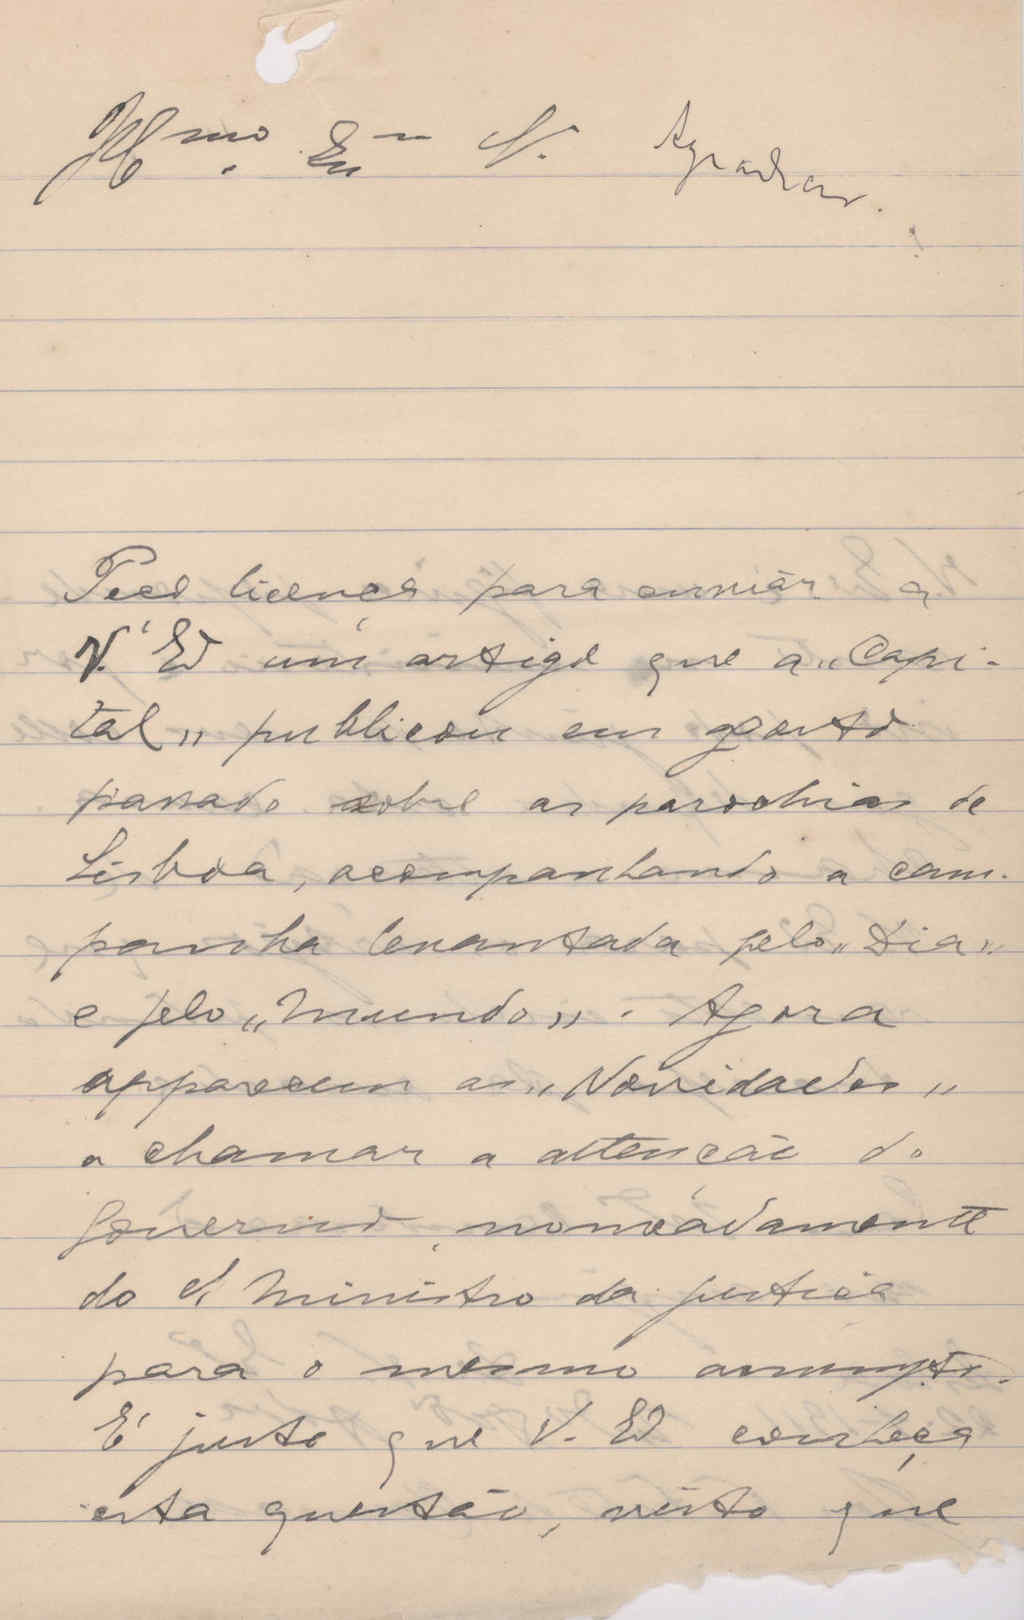 Illmo. Exmo Sr. Agradecer.
Peço licença para enviar a
V. Exa um artigo que a „Capi-
tal„ publicou em agosto
passado sobre as parochias de
Lisboa, acompanhando a cam-
panha levantada pelo „Dia„
e pelo „Mundo„. Agora
apparecem as „Novidades„
a chamar a attenção do
Governo, nomeadamente
do Sr. Ministro da justiça
para o mesmo assumpto.
É justo que V. Exa conheça
esta questão, visto que